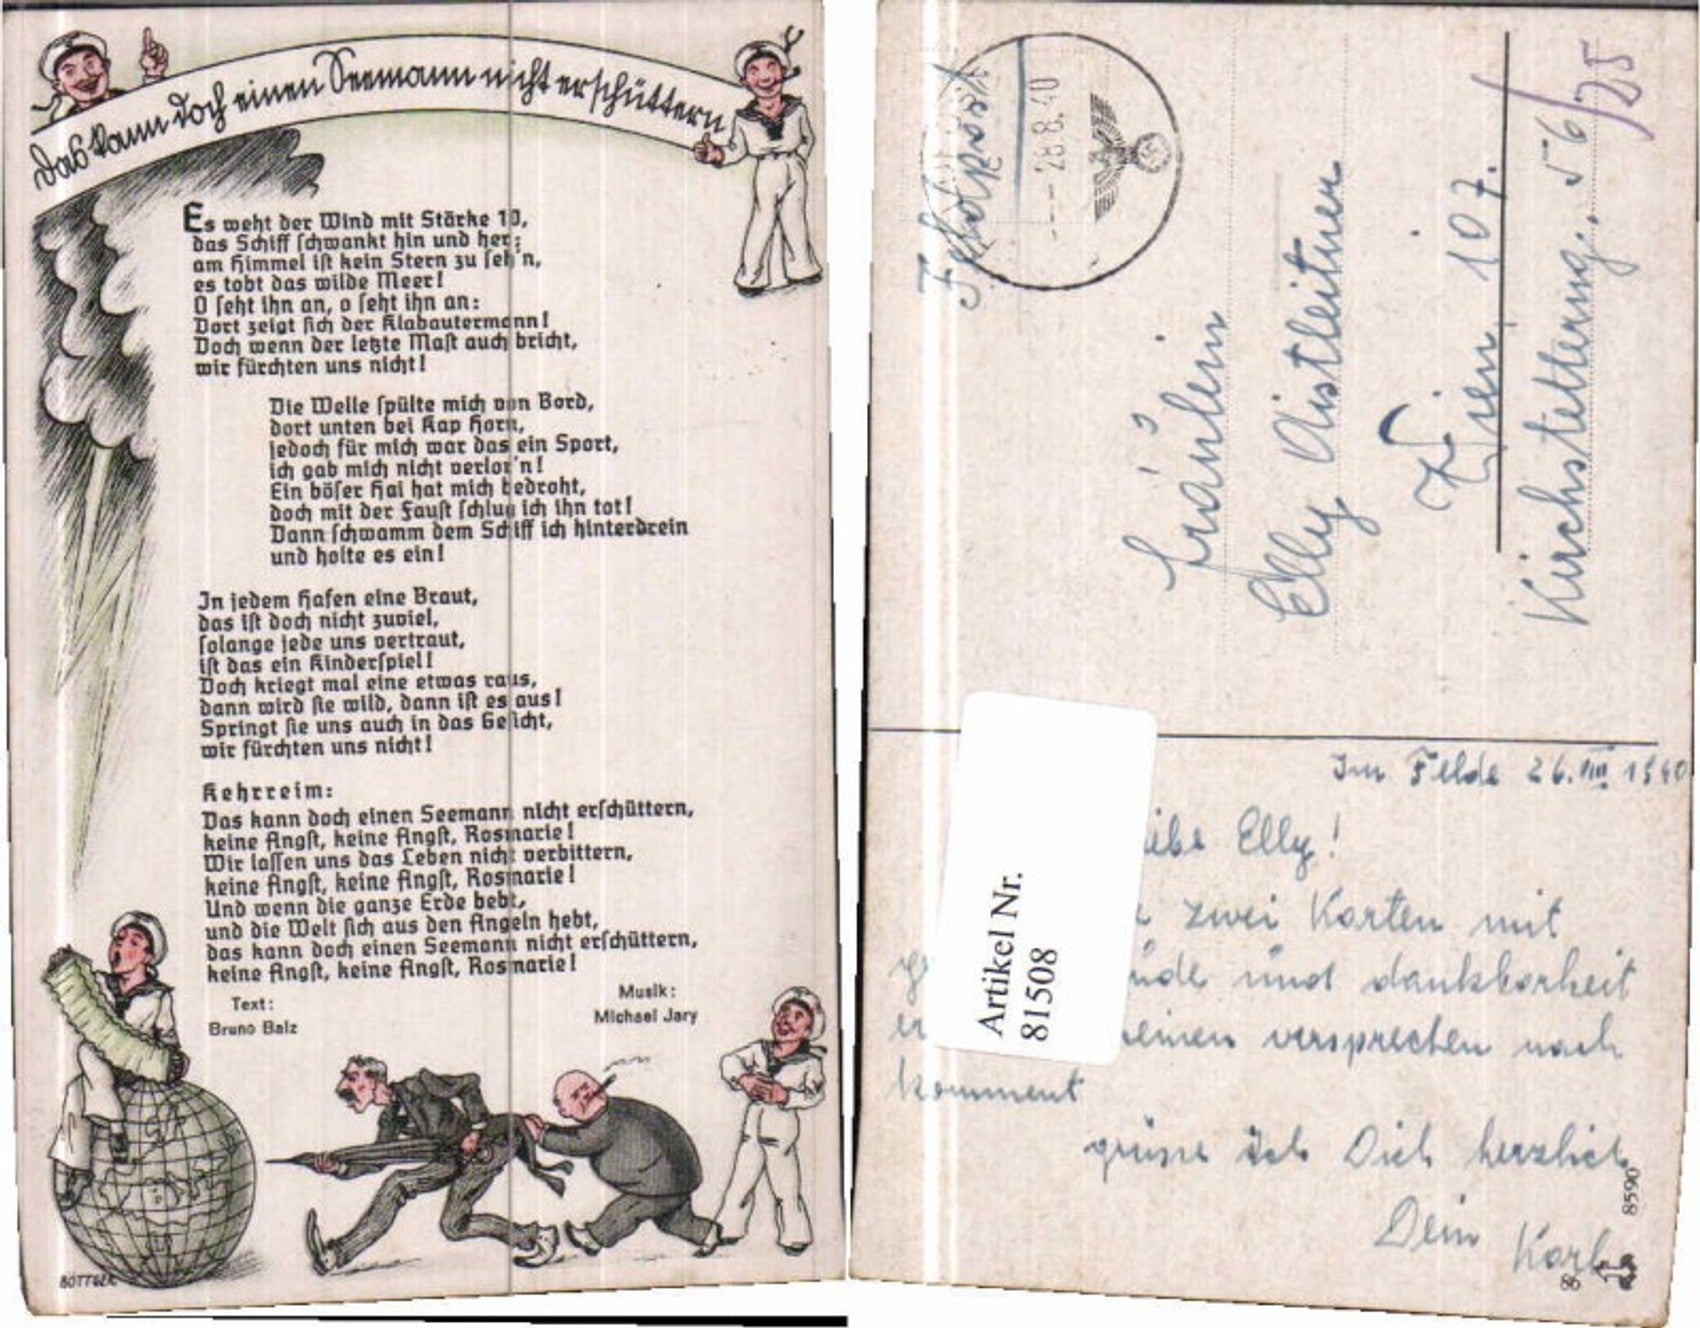 Das kann doch einen Seemann nicht erschüttern
Es weht der Wind mit Stärke 10,
das Schiff schwankt hin und her;
am Himmel ist kein Stern zu seh'n,
es tobt das wilde Meer!
O seht ihn an, o seht ihn an:
Dort zeigt sich der Klabautermann!
Doch wenn der letzte Mast auch bricht,
wir fürchten uns nicht!
Die Welle spülte mich von Bord,
dort unten bei Kap Horn,
jedoch für mich war das ein Sport,
ich gab mich nicht verlor'n!
Ein böser Hai hat mich bedroht,
doch mit der Faust schlug ich ihn tot!
Dann schwamm dem Schiff ich hinterdrein
und holte es ein!
In jedem Hafen eine Braut,
das ist doch nicht zuviel,
solange jede uns vertraut,
ist das ein Kinderspiel!
Doch kriegt mal eine etwas raus,
dann wird sie wild, dann ist es aus!
Springt sie uns auch in das Gesicht,
wir fürchten uns nicht!
Kehrreim:
Das kann doch einen Seemann nicht erschüttern,
keine Angst, keine Angst, Rosmarie!
Wir lassen uns das Leben nicht verbittern,
keine Angst, keine Angst, Rosmarie!
Und wenn die ganze Erde bebt,
und die Welt sich aus den Angeln hebt,
das kann doch einen Seemann nicht erschüttern,
keine Angst, keine Angst, Rosmarie!
Text:
Bruno Balz
Musik:
Michael Jary
BÖTTGER
Feldpost
28.8.40
Fräulein
Elly Aistleitner
Wien 107.
Kirchstetterng. 56/25
Artikel Nr.
81508
Im Felde 26.VIII 1940
Elly!
zwei Karten mit
und dankbarheit
versprechen nach
komment
grüsse ich Dich herzlich
Dein Karl
86
8590